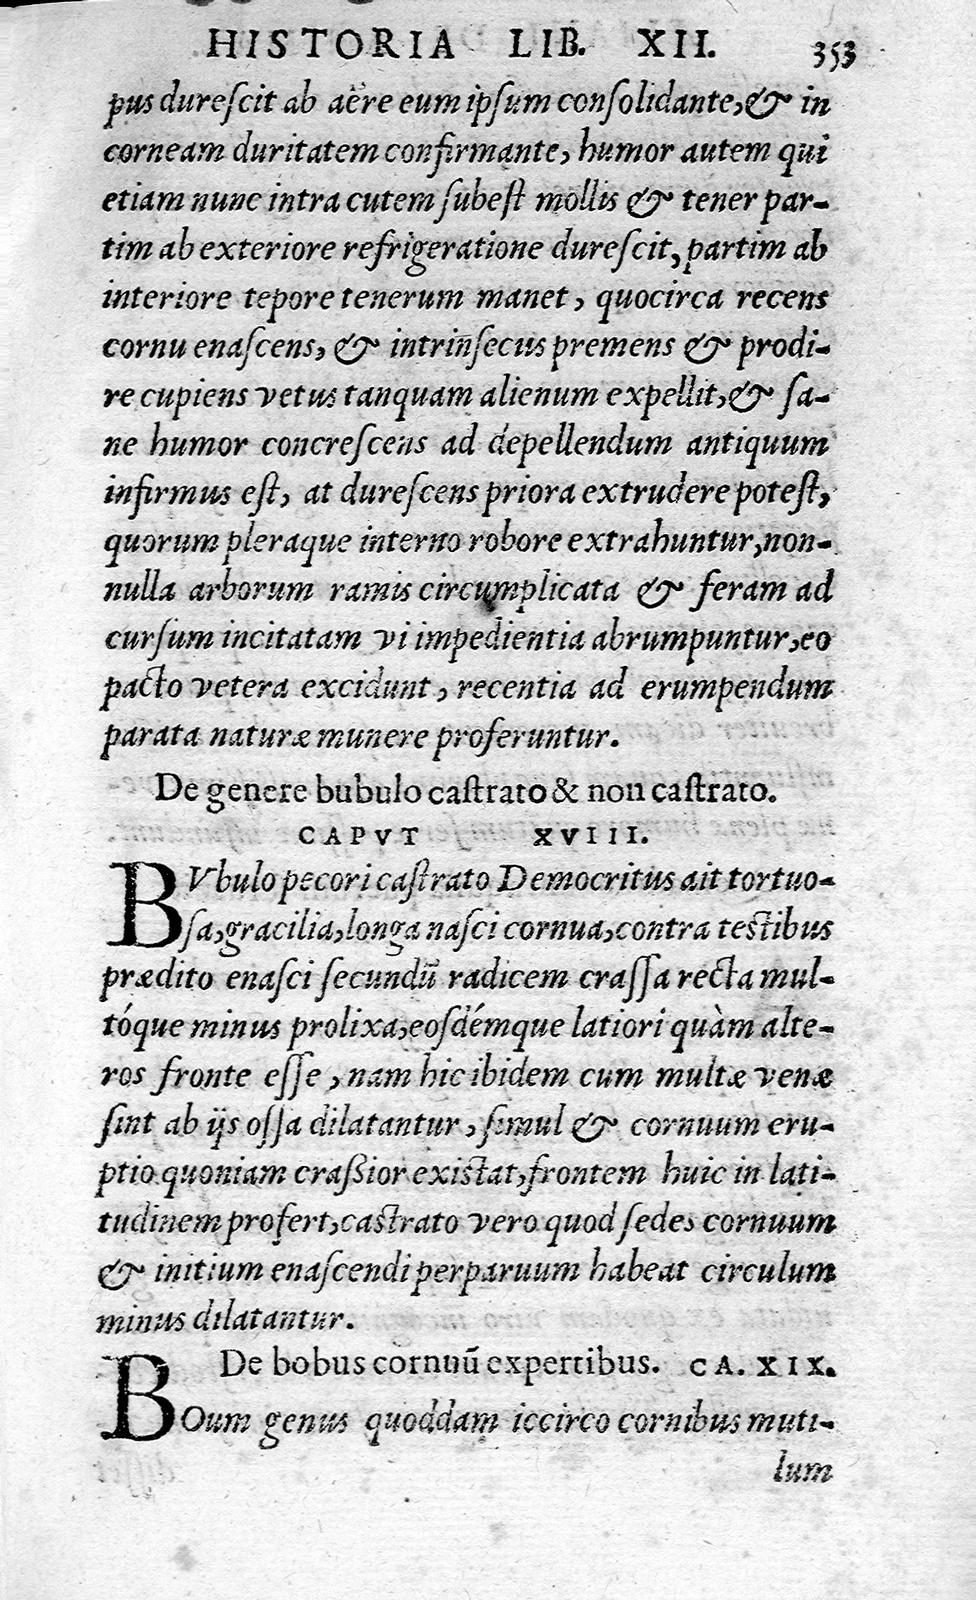 HISTORIA LIB. XII. 353
pus durescit ab aëre eum ipsum consolidante, & in
corneam duritatem confirmante, humor autem qui
etiam nunc intra cutem subest mollis & tener par-
tim ab exteriore refrigeratione durescit, partim ab
interiore tepore tenerum manet, quocirca recens
cornu enascens, & intrin̄secus premens & prodi-
re cupiens vetus tanquam alienum expellit, & sa-
ne humor concrescens ad depellendum antiquum
infirmus est, at durescens priora extrudere potest,
quorum pleraque interno robore extrahuntur, non-
nulla arborum ramis circumplicata & feram ad
cursum incitatam vi impedientia abrumpuntur, eo
pacto vetera excidunt, recentia ad erumpendum
parata naturæ munere proferuntur.
De genere bubulo castrato & non castrato.
CAPVT XVIII.
BVbulo pecori castrato Democritus ait tortuo-
sa, gracilia, longa nasci cornua, contra testibus
prædito enasci secundū radicem crassa recta mul-
tóque minus prolixa, eosdémque latiori quàm alte-
ros fronte esse, nam hic ibidem cum multæ venæ
sint ab ijs ossa dilatantur, simul & cornuum eru-
ptio quoniam crassior existat, frontem huic in lati-
tudinem profert, castrato vero quod sedes cornuum
& initium enascendi perparuum habeat circulum
minus dilatantur.
De bobus cornuū expertibus. CA. XIX.
BOum genus quoddam iccirco cornibus muti-
lum